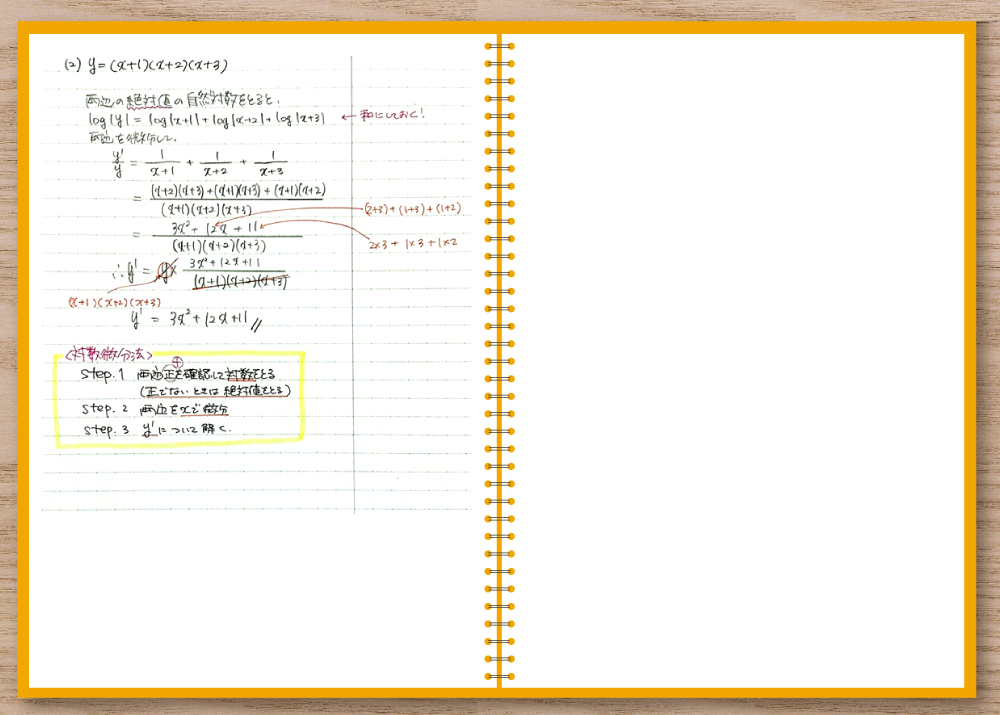 (2) y=(x+1)(x+2)(x+3)
両辺の絶対値の自然対数をとると、
log|y| = log|x+1| + log|x+2| + log|x+3| ← 和にしておく!
両辺を微分して、
y'/y = 1/(x+1) + 1/(x+2) + 1/(x+3)
= ((x+2)(x+3)+(x+1)(x+3)+(x+1)(x+2))/((x+1)(x+2)(x+3))
(2+3)+(1+3)+(1+2)
= (3x²+12x+11)/((x+1)(x+2)(x+3))
2×3+1×3+1×2
∴y' = y× (3x²+12x+11)/((x+1)(x+2)(x+3))
(x+1)(x+2)(x+3)
y' = 3x²+12x+11 //
<対数微分法>
⊕
step.1 両辺正を確認して対数をとる
(正でないときは絶対値をとる)
step.2 両辺をxで微分
step.3 y'について解く.